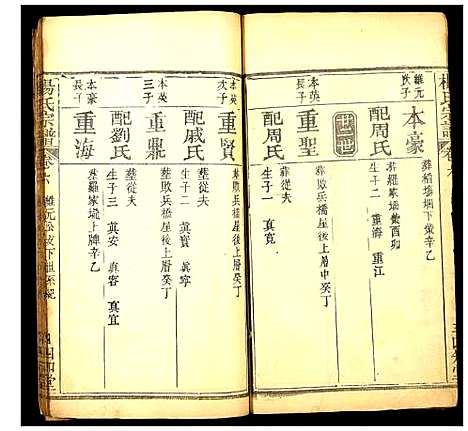 楊氏宗譜 卷六
維元次子
本豪
葬稻場壩下癸辛
配周氏
葬羅家塆癸酉卯
生子二 重海 重江
世
本英長子
重聖
葬敗兵橋屋後上厝中癸丁
配周氏
葬從夫
生子一 真寬
本英次子
重賢
葬敗兵橋屋後上厝癸丁
配戚氏
葬從夫
生子二 真寶 真寧
本英三子
重鼎
葬敗兵橋屋後上厝癸丁
配劉氏
葬從夫
生子三 真安 真宜
本豪長子
重海
葬羅家塆上牌辛乙
楊氏宗譜 卷六
維元公支下世系
四知堂